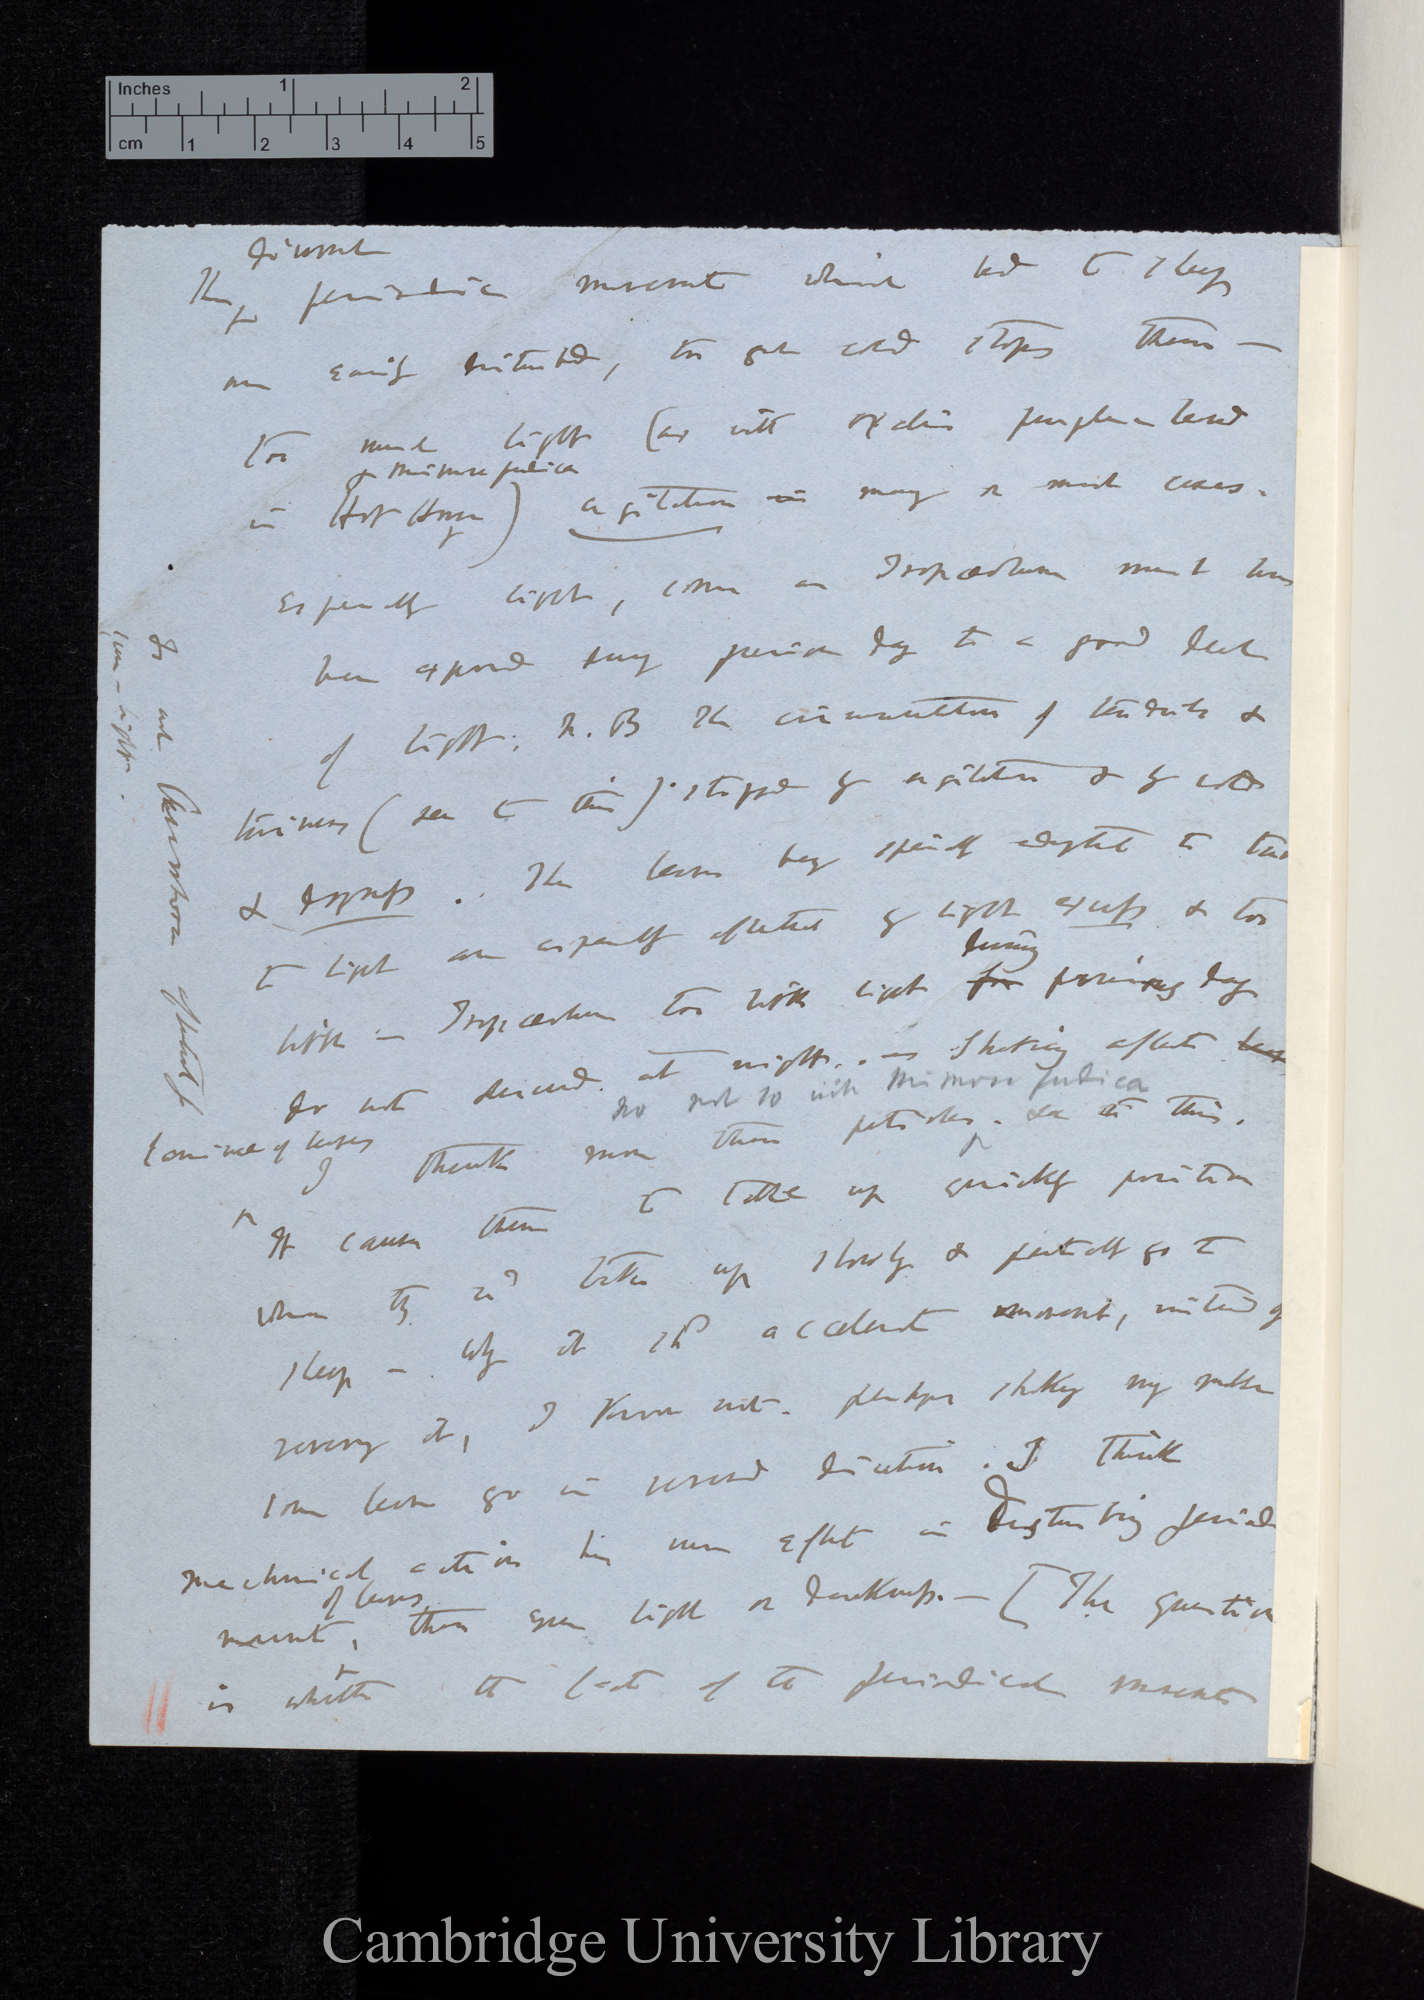 Inches 1 2
cm 1 2 3 4 5
diurnal
The periodic movements which led to sleep
are easily disturbed, too great cold stops them —
too much light (as with oxalis
& Mimosa pudica
in Hot House) agitation in many or most cases.
Especially light, some as Tropæolum must have
been exposed during previous day to a good deal
of light; N.B The of tendrils &
twiners (see to this) stopped by agitation & by cold
& dryness. The leaves being specially adapted to
to light are especially affected by light excess & too
little — Tropæolum too little light during for previous day
do not descend at night. — Shaking affects
no not so with Mimosa pudica
I think more than petioles. see to this.
It causes them to take up quickly position
when they wd take up slowly & partially go to
sleep — why it shd accelerate movement, instead of
it, I know not. perhaps shaking may make
some leaves go in reversed direction. I think
mechanical action has more effect in disturbing periodic
of leaves
movement, than even light or darkness. — [The question
is whether the of the periodical movements
Do not affected by
sun-light.
lamina of leaves
Cambridge University Library